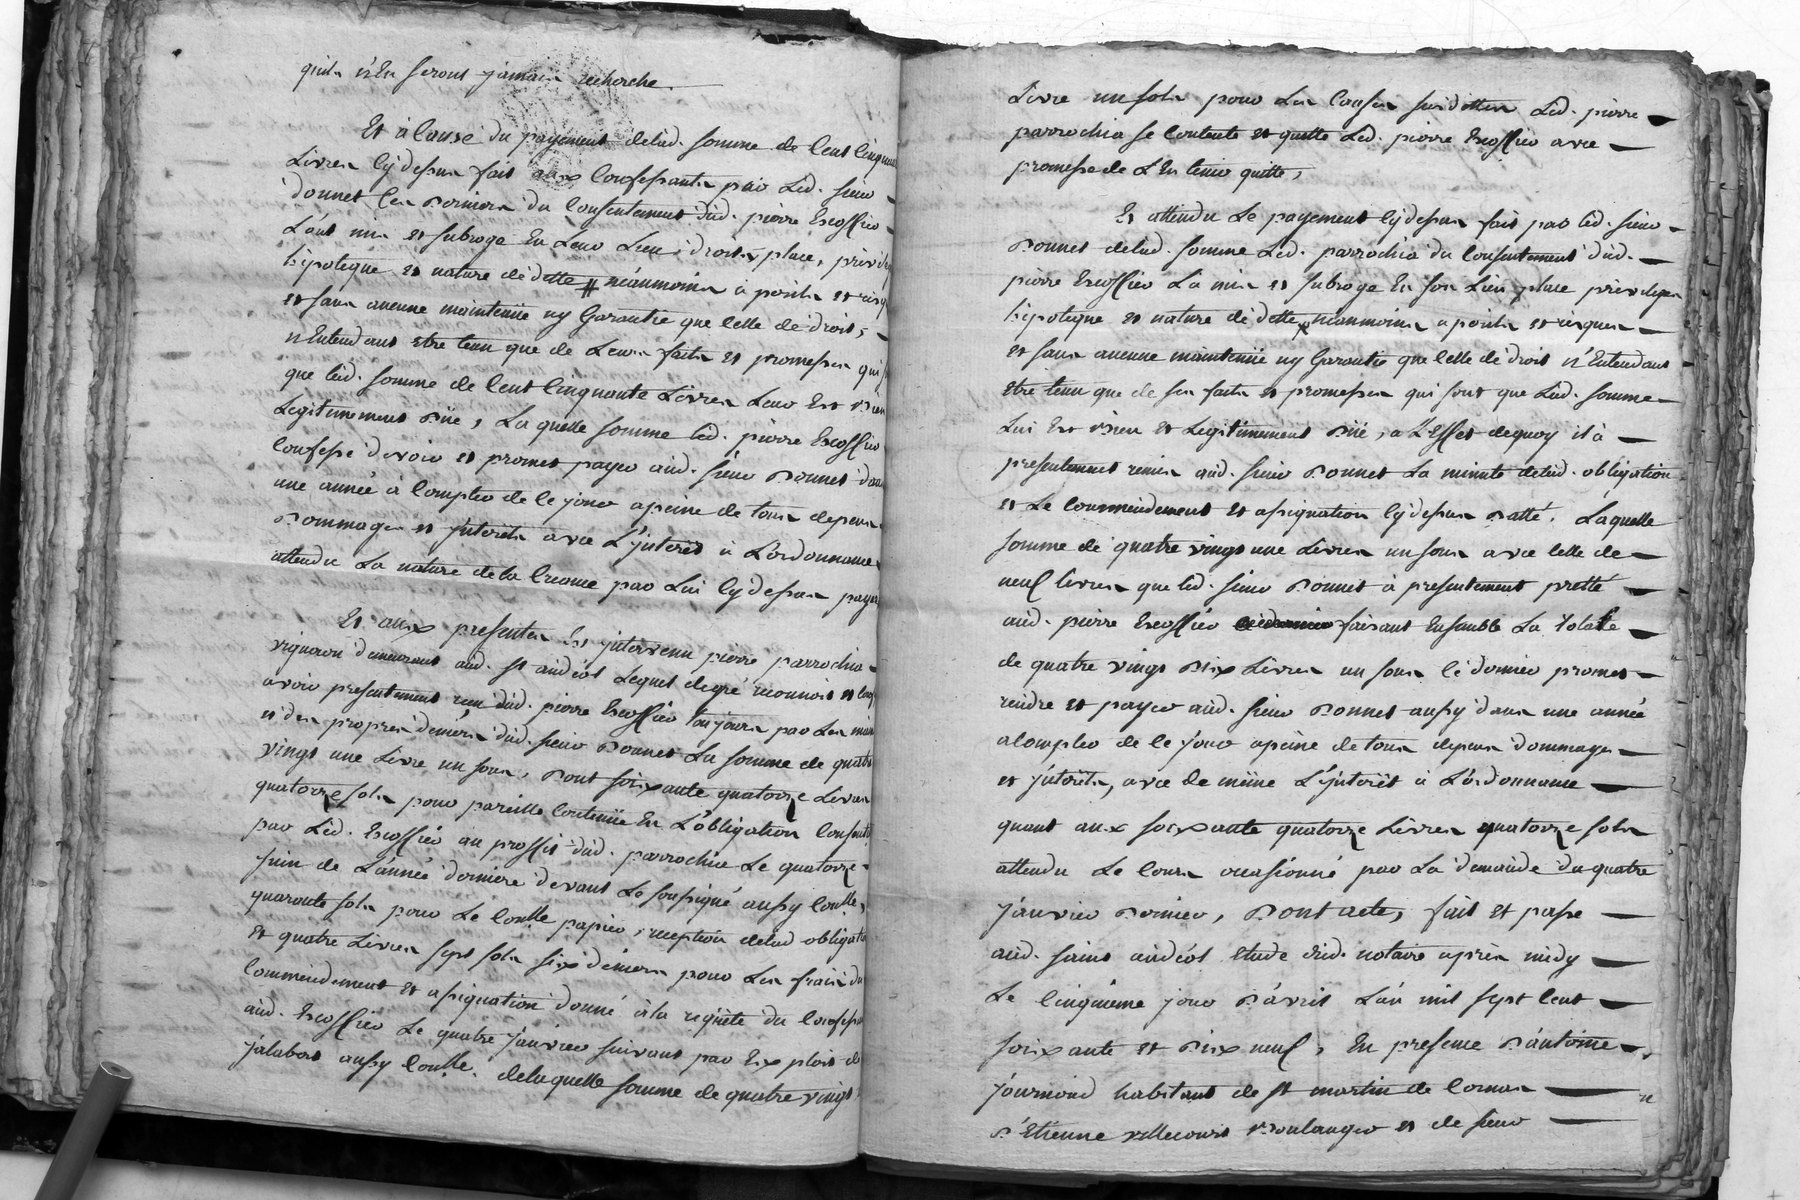 quils n'En seront jamais recherche.
Et à Cause du payement delad. somme de Cent Cinquante
Livres Cy dessus fait aux Confessants par Led. sieur
donnet Ces Derniers du Consentement dud. pierre Escoffier
L'ont mis et subrogé En Leur Lieu, droits, place, privilege
hipoteque et nature de dette # neanmoins à perils et risques
et sans aucune maintenüe ny Garantie que Celle de droit,
n'Entendant etre tenu que de Leurs faits et promesses qui
que lad. somme de Cent Cinquante Livres Leur Est Bien
Legitimement Düe, La quelle somme Led. pierre Escoffier
Confesse devoir et promet payer aud. sieur Donnet dans
une année à Compter de Ce jour apeine de tous depens
Dommages et jnterets avec L'jnteret à L'ordonnance
attendu La nature de la Creance par Lui Cy dessus payée
Et aux presentes Est jntervenu pierre parrochia
vigneron demeurant aud. st andéol Lequel de gré reconnoit et Conf
avoir presentement reçu dud. pierre Escoffier toujours par Les mains
et des propres deniers dud. sieur Donnet La somme de quatre
vingt une Livre un sous, Dont soixante quatorze Livres
quatorze sols pour pareille Contenüe En L'obligation Consentie
par Led. Escoffier au proffit dud. parrochia Le quatorze
juin de L'année derniere devant Le soussigné aussy Conllé,
quarante sols pour Le Conlle papier, reception delad obligation
Et quatre Livres sept sols six deniers pour Les frais du
Commendement et assignation donné à la requete du Confessant
aud. Escoffier Le quatre janvier suivant par Exploit de
jalabert aussy Conlle. delaquelle somme de quatre vingt
Livre un sols pour Les Causes susdittes Led. pierre
parrochia se Contente et quitte Led. pierre Escoffier avec
promesse de L'En tenir quitte,
Et attendu Le payement Cy dessus fait par led. sieur
Donnet delad. somme Led. parrochia du Consentement dud.
pierre Escoffier La mis et subrogé En son Lieu place privileges
hipoteque et nature de dette neanmoins a perils et risques
et sans aucune maintenüe ny Garantie que Celle de droit n'Entendant
etre tenu que de ses faits et promesses qui sont que Lad. somme
Lui Est Bien et Legitimement Düe, a L'Effet dequoy il à
presentement remis aud. sieur Donnet La minute delad. obligation
et Le Commendement et assignation Cy dessus Datté. Laquelle
somme de quatre vingt une Livres un sous avec Celle de
neuf livres que led. sieur Donnet à presentement pretté
aud. pierre Escoffier faisant Ensemble La Totale
de quatre vingt Dix Livres un sous Ce dernier promet
rendre et payer aud. sieur Donnet aussy dans une année
a Compter de Ce jour apeine de tous depens dommages
et jnterets, avec De même L'jnteret à L'ordonnance
quant aux soixante quatorze Livres quatorze sols
attendu Le Cours occasionné par La demande du quatre
janvier Dernier, Dont acte, fait et passé
aud. saint andéol Etude dud. notaire après midy
Le Cinquieme jour D'avril L'an mil sept Cent
soixante et Dix neuf, En presence D'antoine
journoud habitant de st martin de Cornas
D'Etienne villecourt Boulanger et de sieur